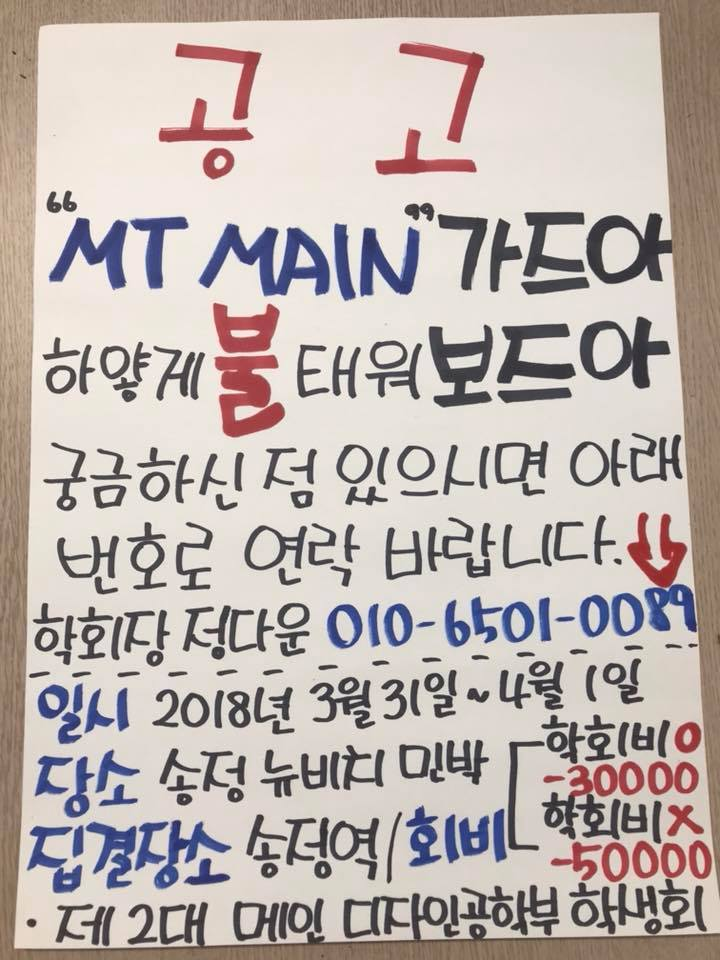 공 고
"MT MAIN" 가즈아
하얗게 불태워 보즈아
궁금하신 점 있으시면 아래
번호로 연락 바랍니다.
학회장 정다운 010-6501-0089
일시 2018년 3월 31일 ~ 4월 1일
장소 송정 뉴비치 민박
학회비 O
-30000
집결장소 송정역 / 회비
학회비 X
-50000
· 제 2대 메인 디자인공학부 학생회